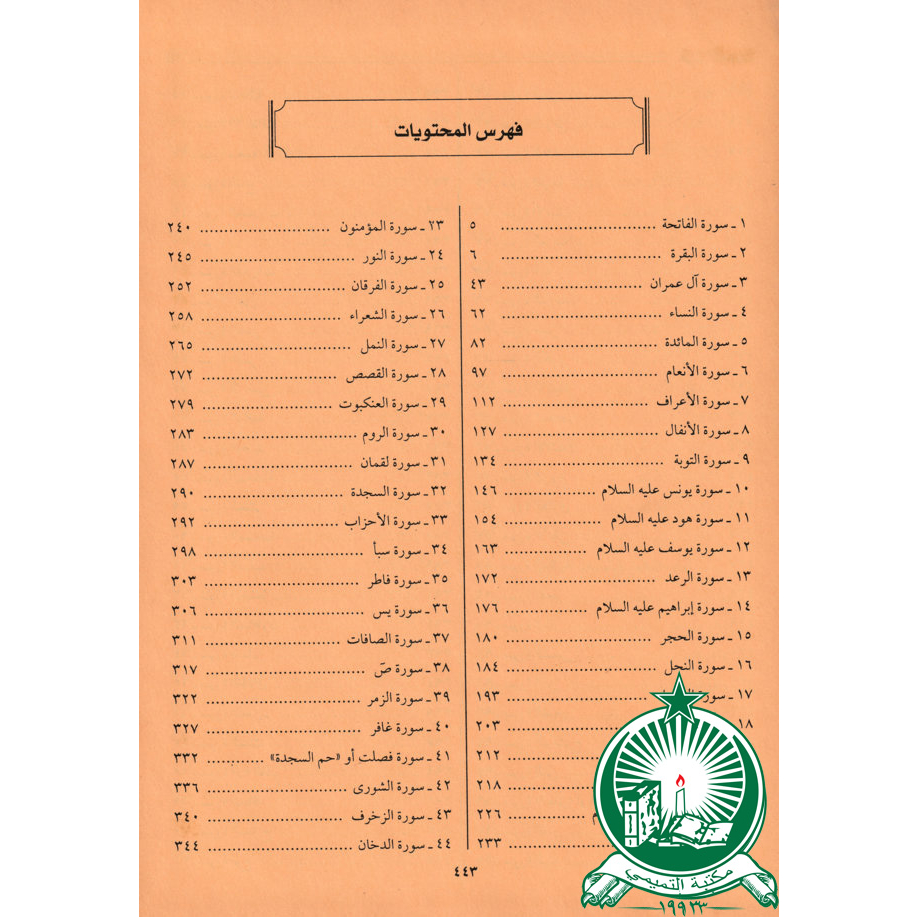 فهرس المحتويات
١ ـ سورة الفاتحة ............................... ٥
٢ ـ سورة البقرة ............................... ٦
٣ ـ سورة آل عمران ............................ ٤٣
٤ ـ سورة النساء ............................... ٦٢
٥ ـ سورة المائدة ............................... ٨٢
٦ ـ سورة الأنعام ............................... ٩٧
٧ ـ سورة الأعراف ............................. ١١٢
٨ ـ سورة الأنفال ............................... ١٢٧
٩ ـ سورة التوبة ............................... ١٣٤
١٠ ـ سورة يونس عليه السلام .................. ١٤٦
١١ ـ سورة هود عليه السلام ................... ١٥٤
١٢ ـ سورة يوسف عليه السلام ................ ١٦٣
١٣ ـ سورة الرعد .............................. ١٧٢
١٤ ـ سورة إبراهيم عليه السلام ................ ١٧٦
١٥ ـ سورة الحجر ............................. ١٨٠
١٦ ـ سورة النحل .............................. ١٨٤
١٧ ـ سورة ............................. ١٩٣
١٨ ............................. ٢٠٣
٢١٢
٢١٨
٢٢٦
............................. ٢٣٣
٢٣ ـ سورة المؤمنون .......................... ٢٤٠
٢٤ ـ سورة النور ............................... ٢٤٥
٢٥ ـ سورة الفرقان ............................. ٢٥٢
٢٦ ـ سورة الشعراء ............................ ٢٥٨
٢٧ ـ سورة النمل .............................. ٢٦٥
٢٨ ـ سورة القصص ........................... ٢٧٢
٢٩ ـ سورة العنكبوت .......................... ٢٧٩
٣٠ ـ سورة الروم ............................... ٢٨٣
٣١ ـ سورة لقمان .............................. ٢٨٧
٣٢ ـ سورة السجدة ............................ ٢٩٠
٣٣ ـ سورة الأحزاب ........................... ٢٩٢
٣٤ ـ سورة سبأ ................................ ٢٩٨
٣٥ ـ سورة فاطر ............................... ٣٠٣
٣٦ ـ سورة يس ................................ ٣٠٦
٣٧ ـ سورة الصافات ........................... ٣١١
٣٨ ـ سورة صَ ................................ ٣١٧
٣٩ ـ سورة الزمر ............................... ٣٢٢
٤٠ ـ سورة غافر ............................... ٣٢٧
٤١ ـ سورة فصلت أو «حم السجدة» ............ ٣٣٢
٤٢ ـ سورة الشورى ............................ ٣٣٦
٤٣ ـ سورة الزخرف ........................... ٣٤٠
٤٤ ـ سورة الدخان ............................. ٣٤٤
٤٤٣
مكتبة التميمي
١٩٩٣